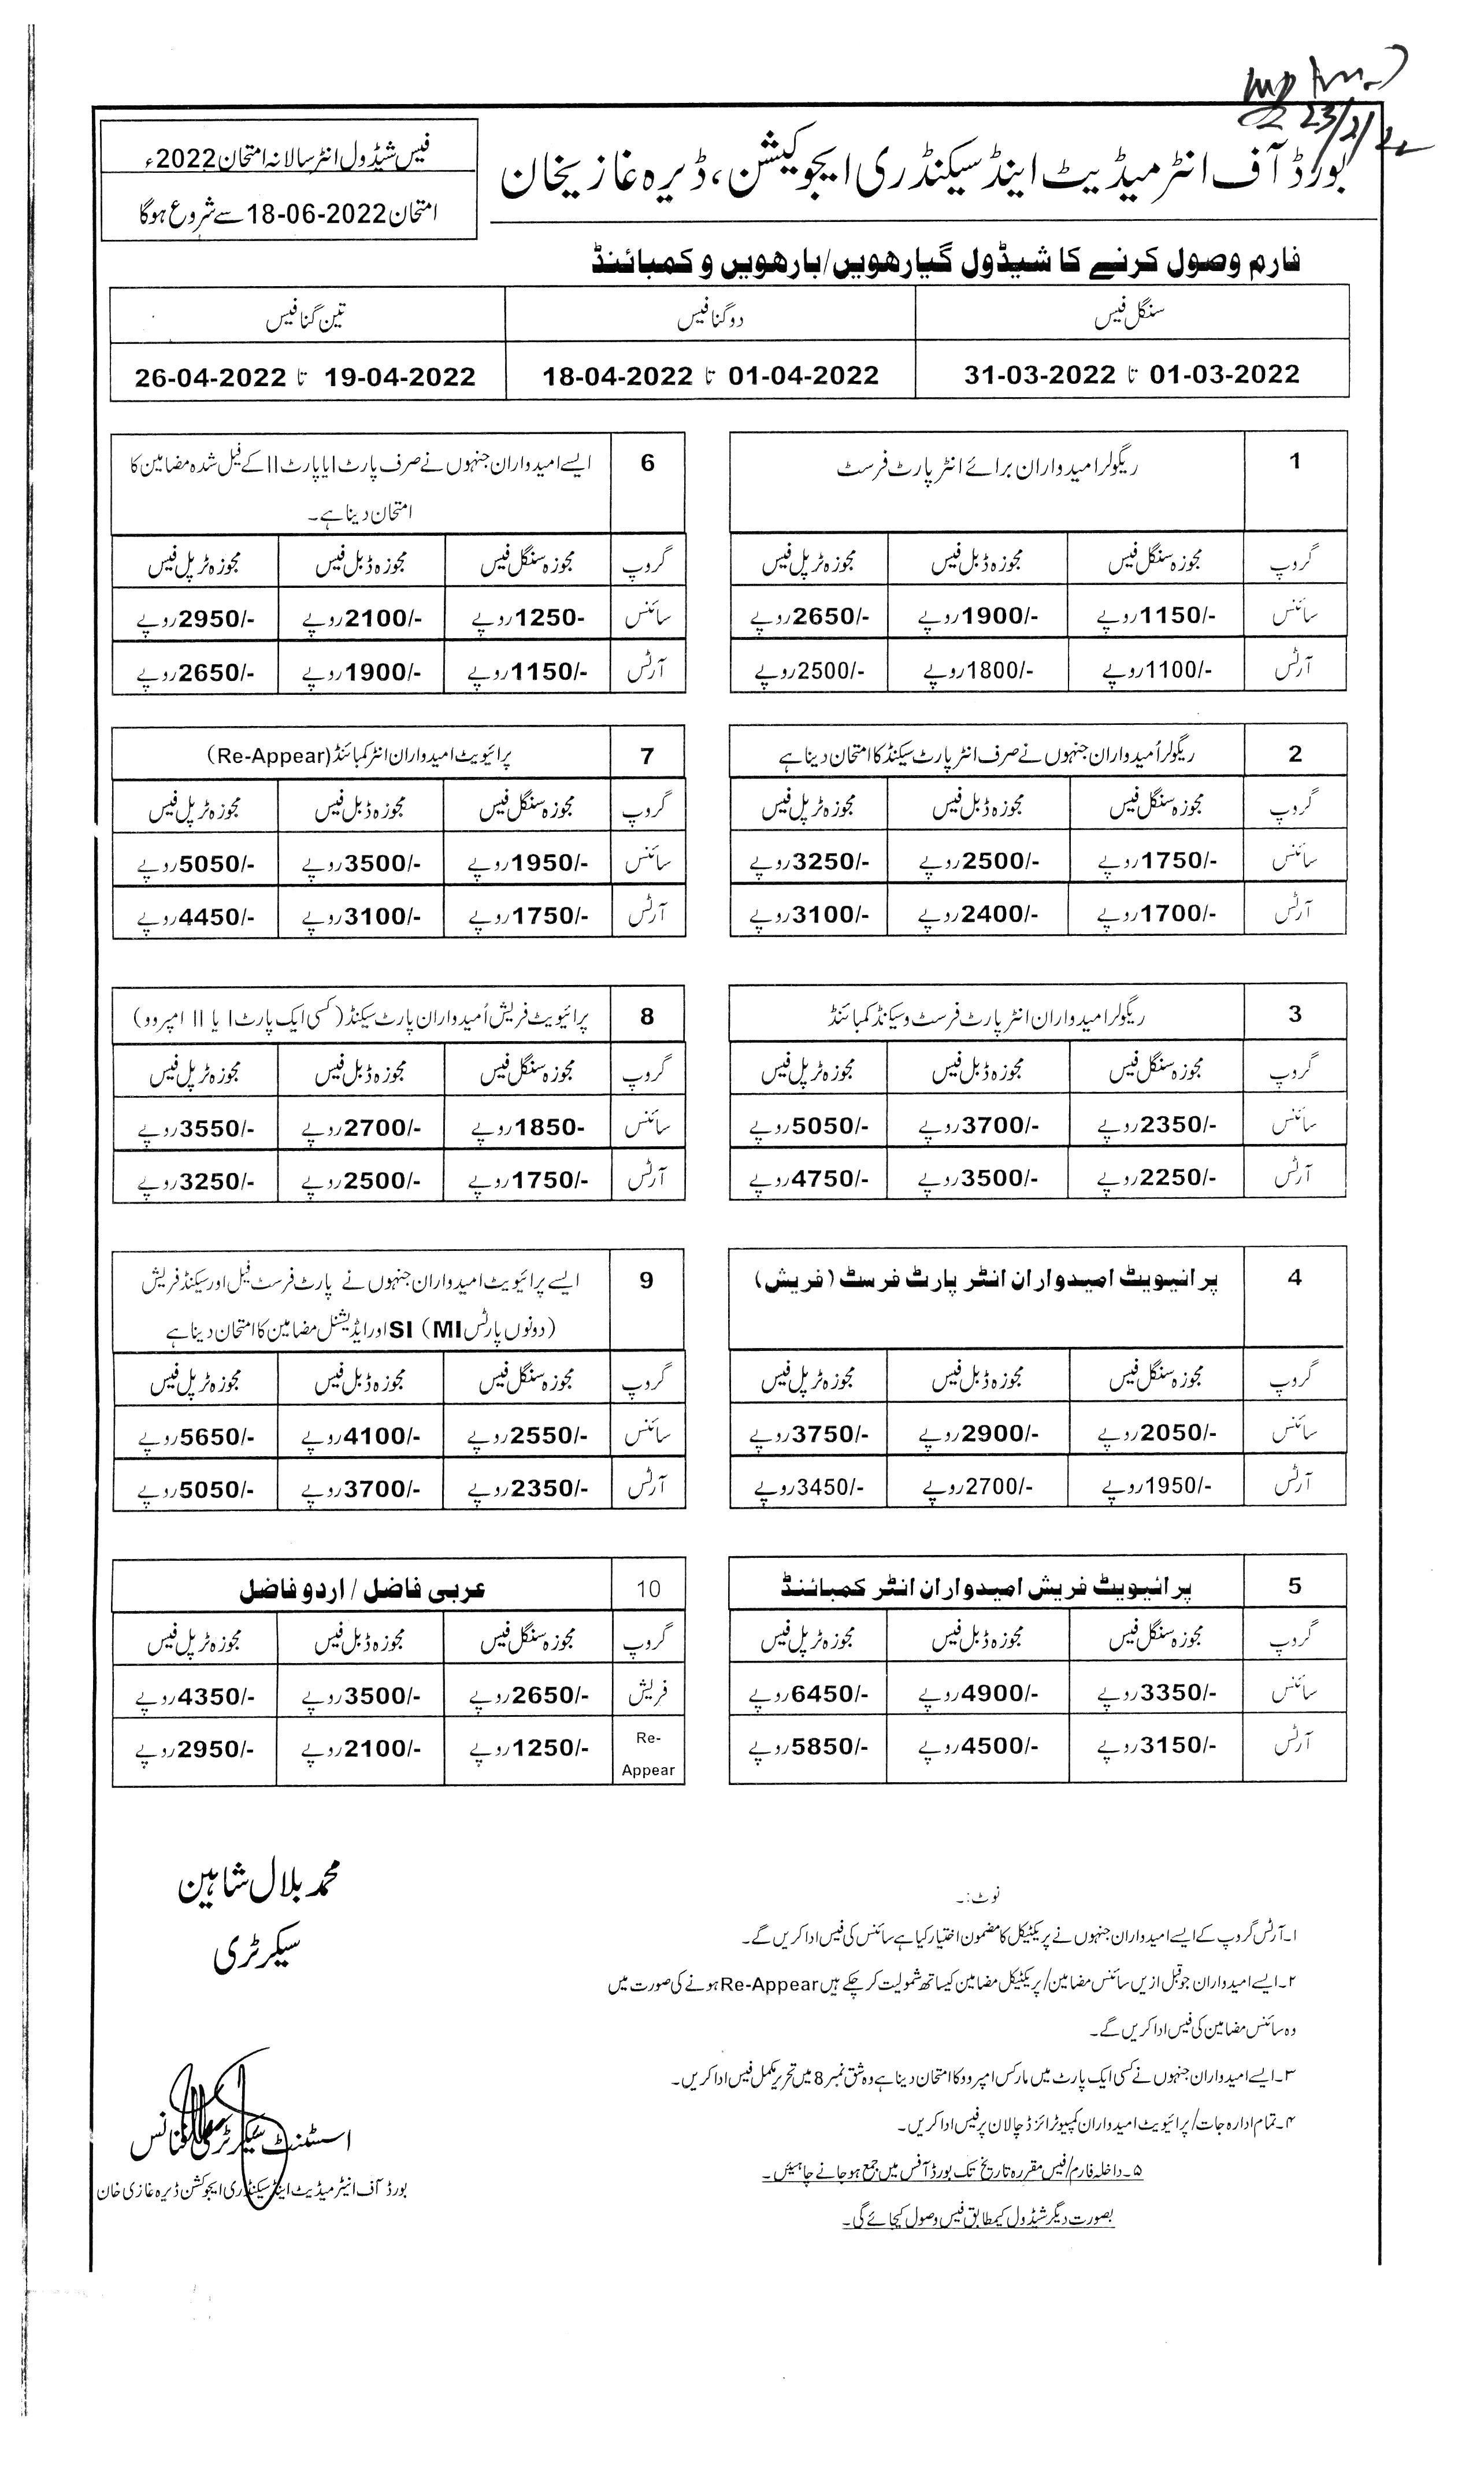 23/2/22
بورڈ آف انٹرمیڈیٹ اینڈ سیکنڈری ایجوکیشن، ڈیرہ غازیخان
فیس شیڈول انٹر سالانہ امتحان 2022ء
امتحان 2022-06-18 سے شروع ہوگا
فارم وصول کرنے کا شیڈول گیارھویں/بارھویں و کمبائنڈ
سنگل فیس دوگنا فیس تین گنا فیس
01-03-2022 تا 31-03-2022 01-04-2022 تا 18-04-2022 19-04-2022 تا 26-04-2022
1 ریگولر امیدواران برائے انٹر پارٹ فرسٹ
گروپ مجوزہ سنگل فیس مجوزہ ڈبل فیس مجوزہ ٹرپل فیس
سائنس 1150/- روپے 1900/- روپے 2650/- روپے
آرٹس 1100/- روپے 1800/- روپے 2500/- روپے
2 ریگولر اُمیدواران جنہوں نے صرف انٹر پارٹ سیکنڈ کا امتحان دینا ہے
گروپ مجوزہ سنگل فیس مجوزہ ڈبل فیس مجوزہ ٹرپل فیس
سائنس 1750/- روپے 2500/- روپے 3250/- روپے
آرٹس 1700/- روپے 2400/- روپے 3100/- روپے
3 ریگولر امیدواران انٹر پارٹ فرسٹ و سیکنڈ کمبائنڈ
گروپ مجوزہ سنگل فیس مجوزہ ڈبل فیس مجوزہ ٹرپل فیس
سائنس 2350/- روپے 3700/- روپے 5050/- روپے
آرٹس 2250/- روپے 3500/- روپے 4750/- روپے
4 پرائیویٹ امیدواران انٹر پارٹ فرسٹ (فریش)
گروپ مجوزہ سنگل فیس مجوزہ ڈبل فیس مجوزہ ٹرپل فیس
سائنس 2050/- روپے 2900/- روپے 3750/- روپے
آرٹس 1950/- روپے 2700/- روپے 3450/- روپے
5 پرائیویٹ فریش امیدواران انٹر کمبائنڈ
گروپ مجوزہ سنگل فیس مجوزہ ڈبل فیس مجوزہ ٹرپل فیس
سائنس 3350/- روپے 4900/- روپے 6450/- روپے
آرٹس 3150/- روپے 4500/- روپے 5850/- روپے
6 ایسے امیدواران جنہوں نے صرف پارٹ I یا پارٹ II کے فیل شدہ مضامین کا
امتحان دینا ہے۔
گروپ مجوزہ سنگل فیس مجوزہ ڈبل فیس مجوزہ ٹرپل فیس
سائنس 1250- روپے 2100/- روپے 2950/- روپے
آرٹس 1150/- روپے 1900/- روپے 2650/- روپے
7 پرائیویٹ امیدواران انٹر کمبائنڈ (Re-Appear)
گروپ مجوزہ سنگل فیس مجوزہ ڈبل فیس مجوزہ ٹرپل فیس
سائنس 1950/- روپے 3500/- روپے 5050/- روپے
آرٹس 1750/- روپے 3100/- روپے 4450/- روپے
8 پرائیویٹ فریش اُمیدواران پارٹ سیکنڈ (کسی ایک پارٹ I یا II امپروو)
گروپ مجوزہ سنگل فیس مجوزہ ڈبل فیس مجوزہ ٹرپل فیس
سائنس 1850- روپے 2700/- روپے 3550/- روپے
آرٹس 1750/- روپے 2500/- روپے 3250/- روپے
9 ایسے پرائیویٹ امیدواران جنہوں نے پارٹ فرسٹ فیل اور سیکنڈ فریش
(دونوں پارٹس MI) SI اور ایڈیشنل مضامین کا امتحان دینا ہے
گروپ مجوزہ سنگل فیس مجوزہ ڈبل فیس مجوزہ ٹرپل فیس
سائنس 2550/- روپے 4100/- روپے 5650/- روپے
آرٹس 2350/- روپے 3700/- روپے 5050/- روپے
10 عربی فاضل / اردو فاضل
گروپ مجوزہ سنگل فیس مجوزہ ڈبل فیس مجوزہ ٹرپل فیس
فریش 2650/- روپے 3500/- روپے 4350/- روپے
Re-Appear 1250/- روپے 2100/- روپے 2950/- روپے
نوٹ:۔
۱۔ آرٹس گروپ کے ایسے امیدواران جنہوں نے پریکٹیکل کا مضمون اختیار کیا ہے سائنس کی فیس ادا کریں گے۔
۲۔ ایسے امیدواران جو قبل ازیں سائنس مضامین/پریکٹیکل مضامین کیساتھ شمولیت کر چکے ہیں Re-Appear ہونے کی صورت میں
وہ سائنس مضامین کی فیس ادا کریں گے۔
۳۔ ایسے امیدواران جنہوں نے کسی ایک پارٹ میں مارکس امپروو کا امتحان دینا ہے وہ شق نمبر 8 میں تحریر مکمل فیس ادا کریں۔
۴۔ تمام ادارہ جات/پرائیویٹ امیدواران کمپیوٹرائزڈ چالان پر فیس ادا کریں۔
۵۔ داخلہ فارم/فیس مقررہ تاریخ تک بورڈ آفس میں جمع ہو جانے چاہیئں۔
بصورت دیگر شیڈول کیمطابق فیس وصول کیجائے گی۔
محمد بلال شاہین
سیکرٹری
اسسٹنٹ سیکرٹری فنانس
بورڈ آف انٹیرمیڈیٹ اینڈ سیکنڈری ایجوکشن ڈیرہ غازی خان